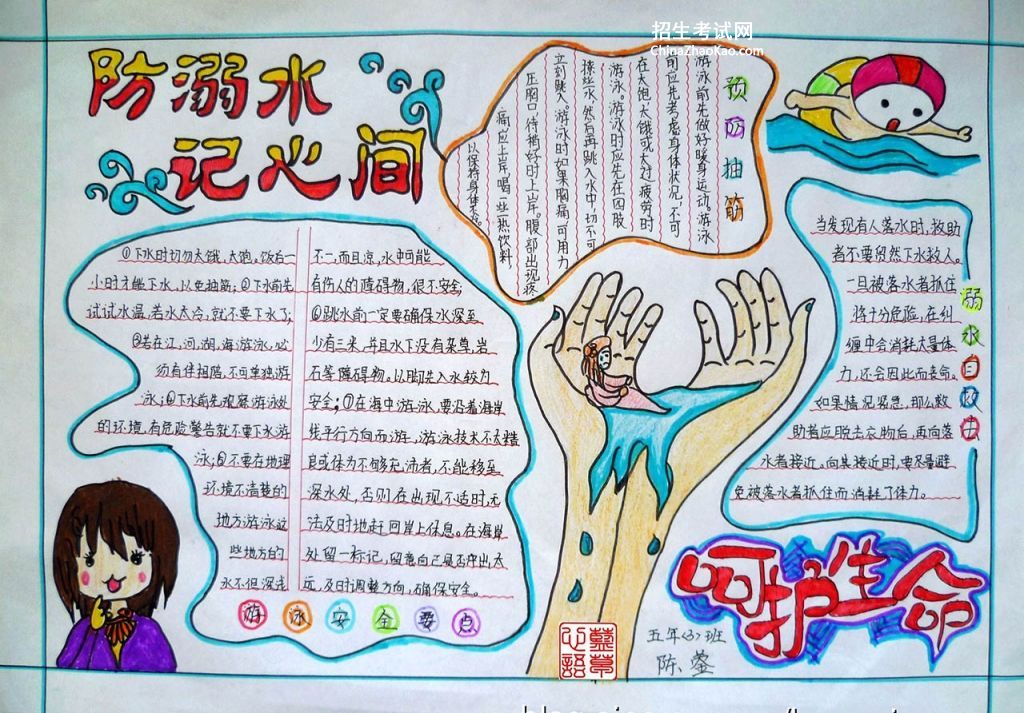 招生考试网
ChinaZhaoKao.com
防溺水
记心间
预防抽筋
游泳前先做好暖身运动。游泳
前应先考虑身体状况,不可
在太饱、太饿或太过疲劳时
游泳。游泳时应先在四肢
撩些水,然后再跳入水中,切不可
立刻跳入。游泳时如果胸痛,可用力
压胸口,待稍好时上岸。腹部出现疼
痛应上岸,喝一些热饮料,
以保持身体
①下水时切勿太饿、太饱。饭后一
小时才能下水,以免抽筋;②下水前先
试试水温,若水太冷,就不要下水了;
③若在江、河、湖、海游泳,必
须有伴相陪,不可单独游
泳;④下水前观察游泳处
的环境,有危险警告就不要下水游
泳;⑤不要在地理
环境不清楚的
地方游泳这
些地方的
水不但深浅
不一,而且凉,水中可能
有伤人的障碍物,很不安全
⑥跳水前一定要确保水深至
少有三米,并且水下没有杂草,岩
石等障碍物。以脚先入水较为
安全;⑦在海中游泳,要沿着海岸
线平行方向而游,游泳技术不太精
良或体力不够充沛者,不能移至
深水处,否则在出现不适时,无
法及时地赶回岸上休息。在海岸
处留一标记,留意向己是否冲出太
远,及时调整方向,确保安全。
游泳安全要点
溺水自救法
当发现有人落水时,救助
者不要贸然下水救人。
一旦被落水者抓住
将十分危险,在纠
缠中会消耗大量体
力,还会因此而丧命。
如果情况紧急,那么救
助者应脱去衣物后,再向落
水者接近。向其接近时,要尽量避
免被落水者抓住而消耗了体力。
呵护生命
五年(3)班
陈